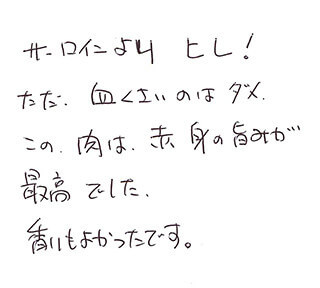 サーロインより ヒレ!
ただ、血くさいのはダメ.
この、肉は、赤身の旨みが
最高でした、
香りもよかったです。